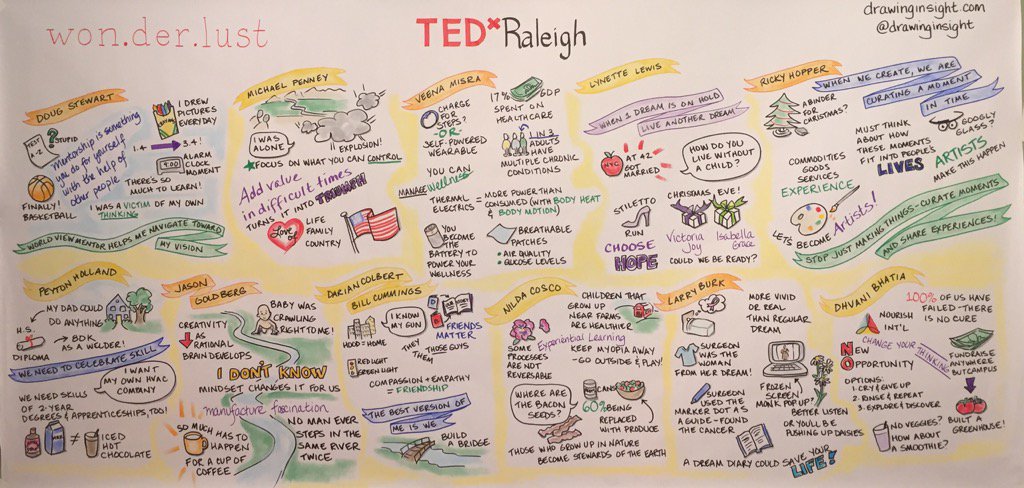 won.der.lust
TEDxRaleigh
drawinginsight.com
@drawinginsight
DOUG STEWART
TEST
A-Z
STUPID
I DREW
PICTURES
EVERYDAY
1.4 → 3.4!
Mentorship is something
you do for yourself
with the help of
other people
9:00
ALARM
CLOCK
MOMENT
THERE'S SO
MUCH TO LEARN!
FINALLY!
BASKETBALL
I WAS A VICTIM OF MY OWN
THINKING
WORLD VIEW MENTOR HELPS ME NAVIGATE TOWARD
MY VISION
MICHAEL PENNEY
I WAS
ALONE!
EXPLOSION!
FOCUS ON WHAT YOU CAN CONTROL
Add value
in difficult times
TURNS IT INTO TRIUMPH
Love of
LIFE
FAMILY
COUNTRY
VEENA MISRA
CHARGE
FOR STEPS?
-OR-
SELF-POWERED
WEARABLE
17% GDP
SPENT ON
HEALTHCARE
1 IN 3
ADULTS
HAVE
MULTIPLE CHRONIC
CONDITIONS
YOU CAN
MANAGE Wellness
THERMAL
ELECTRICS
= MORE POWER THAN
CONSUMED (WITH BODY HEAT
& BODY MOTION)
YOU
BECOME THE
BATTERY TO
POWER YOUR
WELLNESS
BREATHABLE
PATCHES
• AIR QUALITY
• GLUCOSE LEVELS
LYNETTE LEWIS
WHEN 1 DREAM IS ON HOLD
LIVE ANOTHER DREAM
NYC
AT 42
GOT MARRIED
HOW DO YOU
LIVE WITHOUT
A CHILD?
STILETTO
RUN
CHOOSE
HOPE
CHRISTMAS EVE!
Victoria
Joy
Isabella
Grace
COULD WE BE READY?
RICKY HOPPER
WHEN WE CREATE, WE ARE
CURATING A MOMENT
IN TIME
A BINDER
FOR
CHRISTMAS?
GOOGLY
GLASS?
MUST THINK
ABOUT HOW
THESE MOMENTS
FIT INTO PEOPLE'S
LIVES
ARTISTS
MAKE THIS HAPPEN
COMMODITIES
GOODS
SERVICES
EXPERIENCE
LET'S BECOME Artists!
STOP JUST MAKING THINGS - CURATE MOMENTS
AND SHARE EXPERIENCES!
PEYTON HOLLAND
MY DAD COULD
DO ANYTHING
H.S.
DIPLOMA
→ 80K
AS A WELDER!
WE NEED TO CELEBRATE SKILL
I WANT
MY OWN HVAC
COMPANY
WE NEED SKILLS
OF 2-YEAR
DEGREES & APPRENTICESHIPS, TOO!
≠ ICED
HOT
CHOCOLATE
JASON
GOLDBERG
BABY WAS
CRAWLING
RIGHT TO ME!
CREATIVITY
AS
RATIONAL
BRAIN DEVELOPS
I DON'T KNOW
MINDSET CHANGES IT FOR US
manufacture fascination
SO MUCH HAS TO
HAPPEN
FOR A CUP OF
COFFEE
NO MAN EVER
STEPS IN THE
SAME RIVER
TWICE
DARIAN COLBERT
BILL CUMMINGS
HOOD = HOME
I KNOW
MY GUN
FRIENDS
MATTER
THEY
THEM
THOSE GUYS
RED LIGHT
GREEN LIGHT
COMPASSION + EMPATHY
= FRIENDSHIP
THE BEST VERSION OF
ME IS WE
BUILD
A BRIDGE
NILDA COSCO
CHILDREN THAT
GROW UP
NEAR FARMS
ARE HEALTHIER
Experiential Learning
SOME
PROCESSES
ARE NOT
REVERSABLE
KEEP MYOPIA AWAY
- GO OUTSIDE & PLAY!
WHERE ARE
THE BACON
SEEDS?
CANS
60% BEING
REPLACED
WITH PRODUCE
THOSE WHO GROW UP IN NATURE
BECOME STEWARDS OF THE EARTH
LARRY BURK
MORE VIVID
OR REAL
THAN REGULAR
DREAM
SURGEON
WAS THE
WOMAN
FROM HER DREAM!
SURGEON
USED THE
MARKER DOT AS
A GUIDE - FOUND
THE CANCER
FROZEN
SCREEN
MONK POPUP?
BETTER LISTEN
OR YOU'LL BE
PUSHING UP DAISIES
A DREAM DIARY COULD SAVE YOUR
LIFE!
DHVANI BHATIA
100% OF US HAVE
FAILED - THERE IS
NO CURE
NOURISH
INT'L
CHANGE YOUR THINKING
NEW
OPPORTUNITY
FUNDRAISE
ANYWHERE
BUT CAMPUS
OPTIONS:
1. CRY & GIVE UP
2. RINSE & REPEAT
3. EXPLORE & DISCOVER
NO VEGGIES?
HOW ABOUT
A SMOOTHIE?
BUILT A
GREENHOUSE!